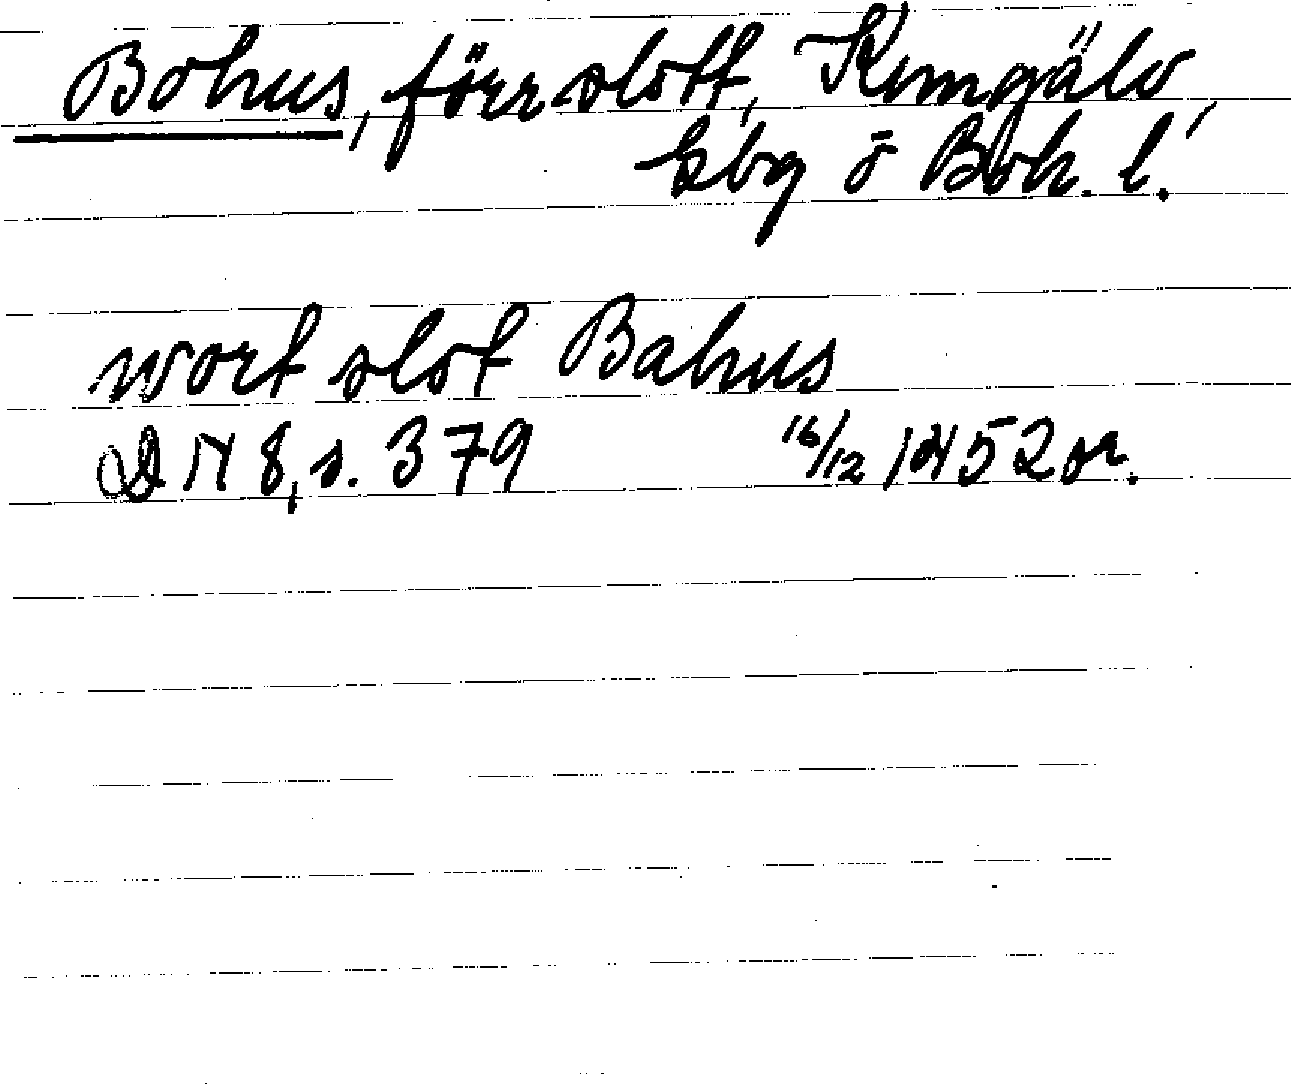 Bohus, förr slott, Kungälv,
Gbg o Boh. l.
wort slot Bahus
DN 8, s. 379 16/12 1452 or.